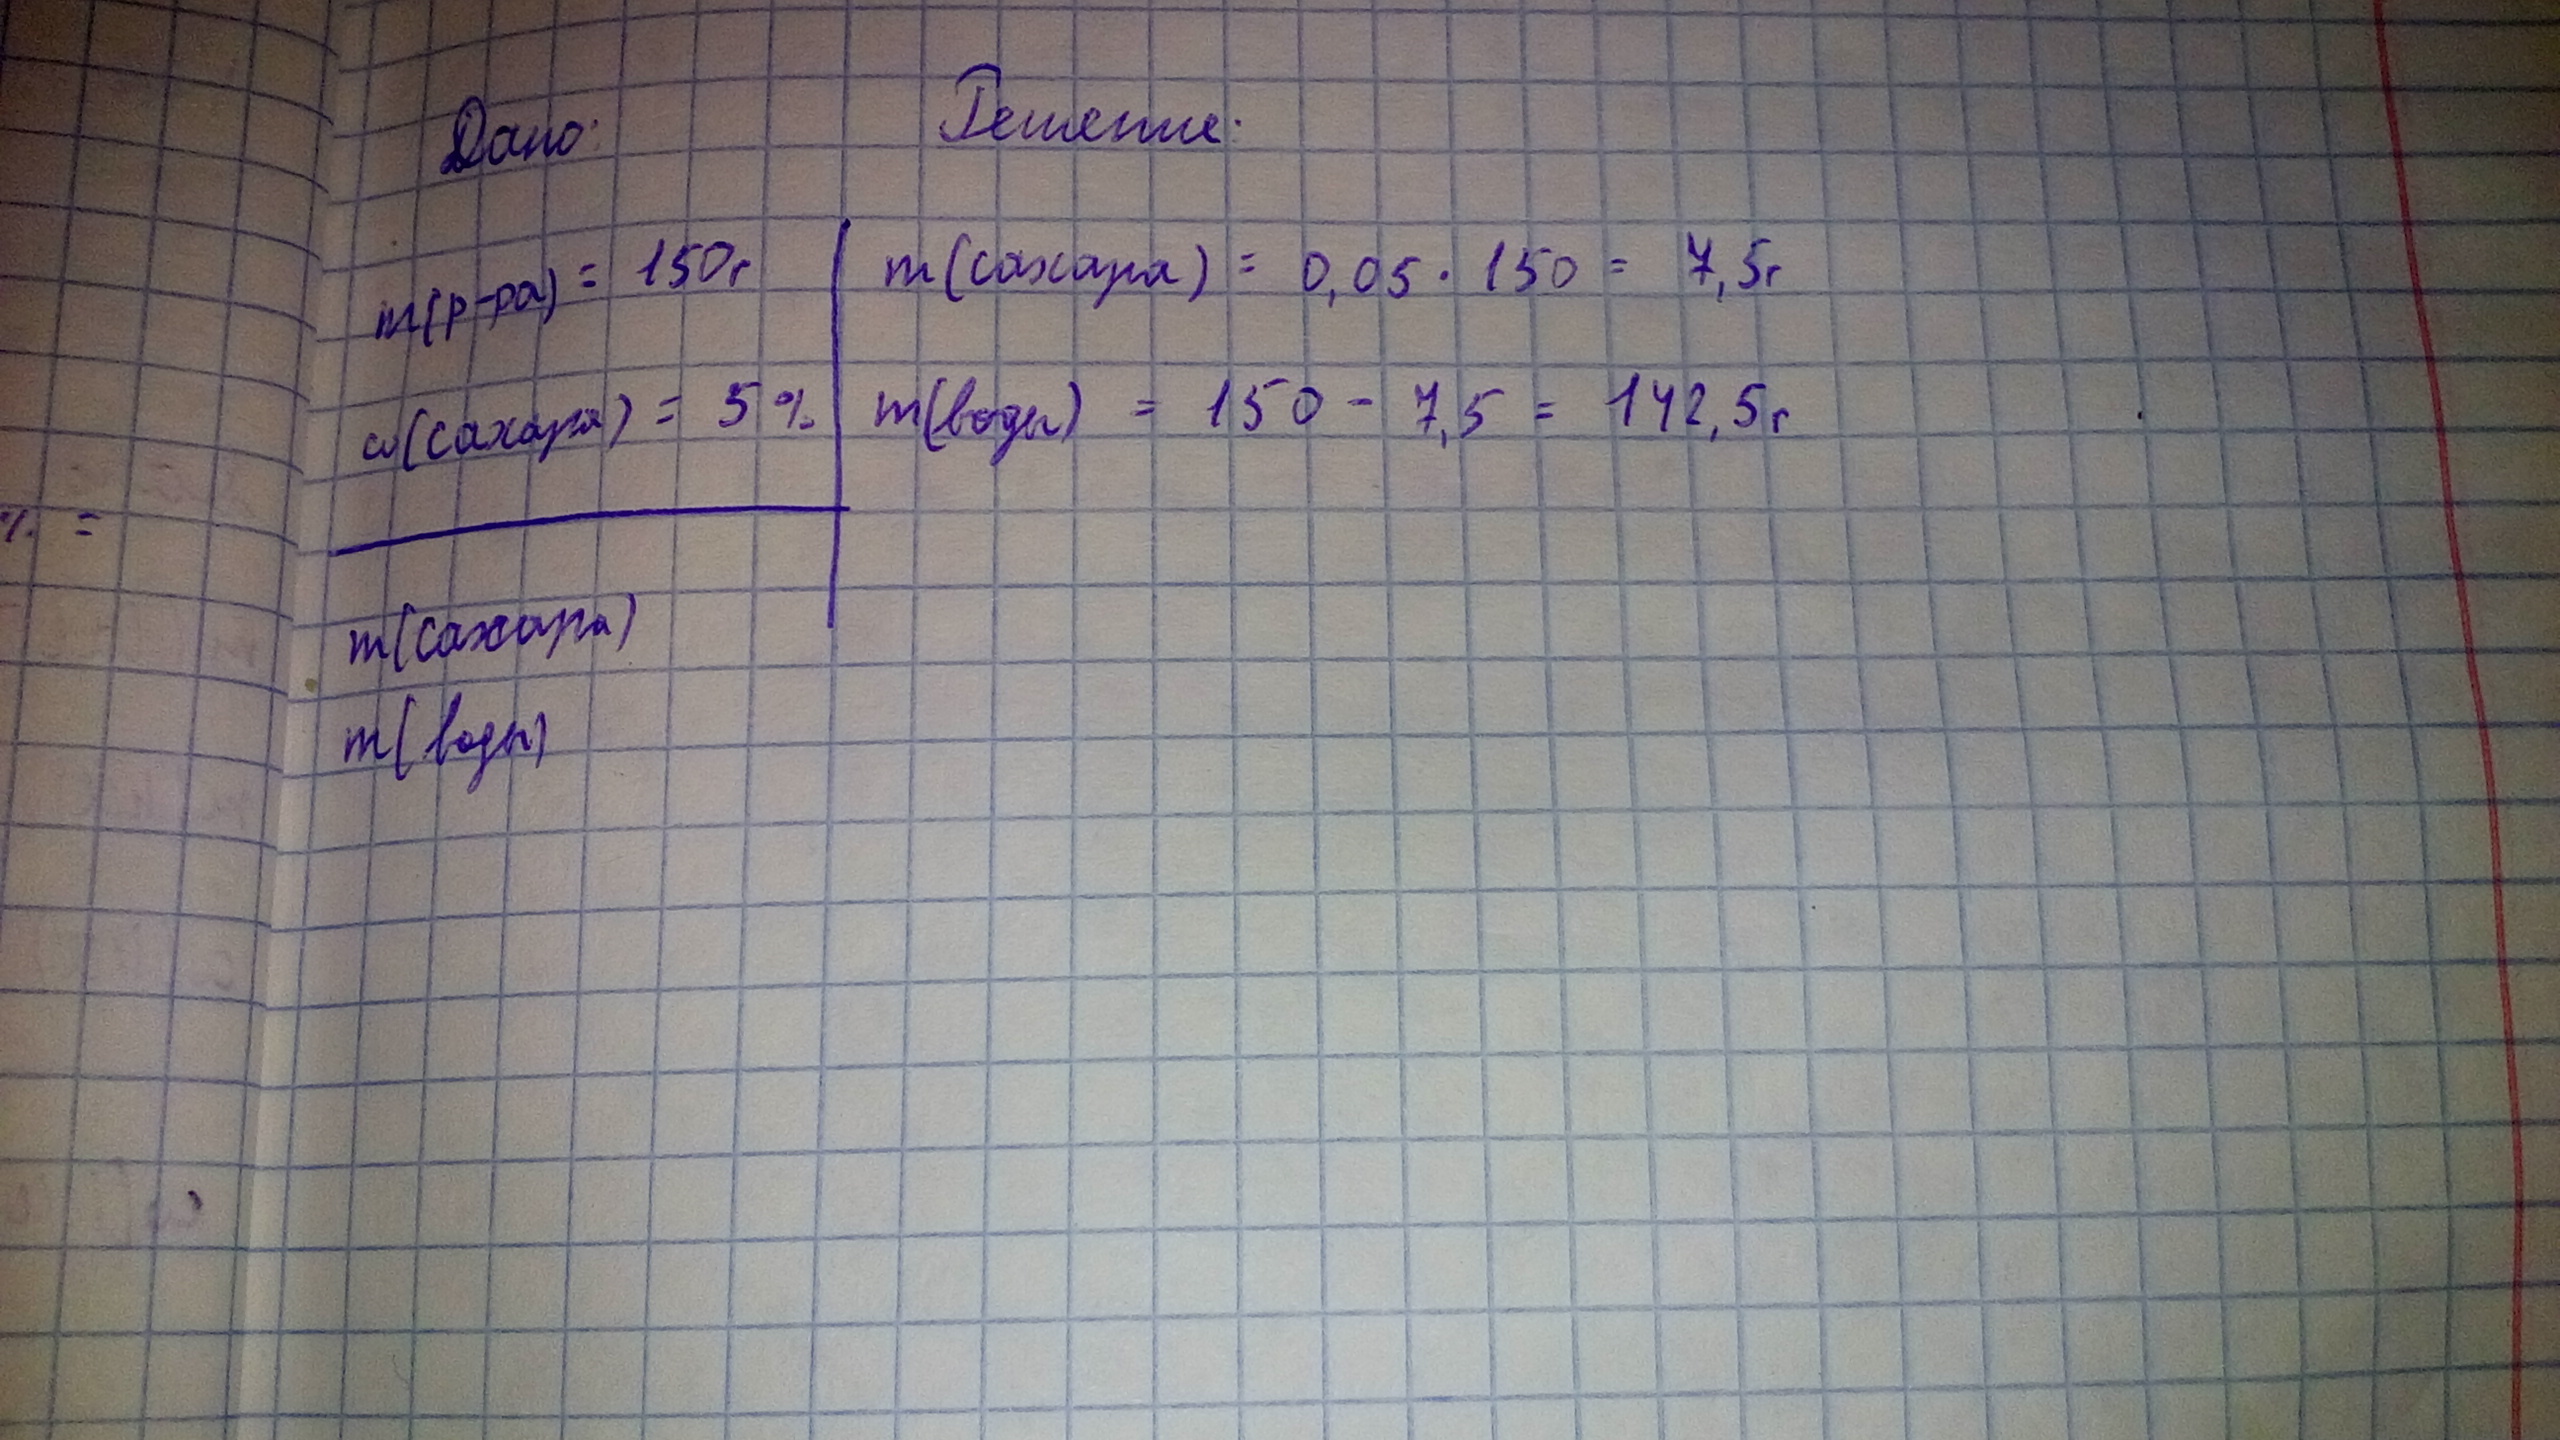 Дано:
m(р-ра) = 150г
ω(сахара) = 5%
m(сахара)
m(воды)
Решение:
m(сахара) = 0,05 · 150 = 7,5г
m(воды) = 150 - 7,5 = 142,5г
% =